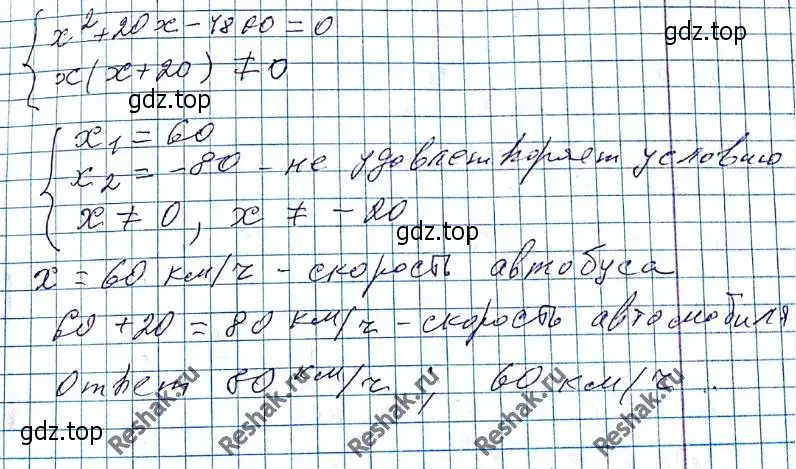 x² + 20x - 4800 = 0
x(x + 20) ≠ 0
gdz.top
gdz.top
x₁ = 60
x₂ = -80 - не удовлетворяет условию
x ≠ 0, x ≠ -20
gdz.top
x = 60 км/ч - скорость автобуса
60 + 20 = 80 км/ч - скорость автомобиля
Ответ 80 км/ч; 60 км/ч.
gdz.top
gdz.top
Reshak.ru
Reshak.ru
Reshak.ru
Reshak.ru